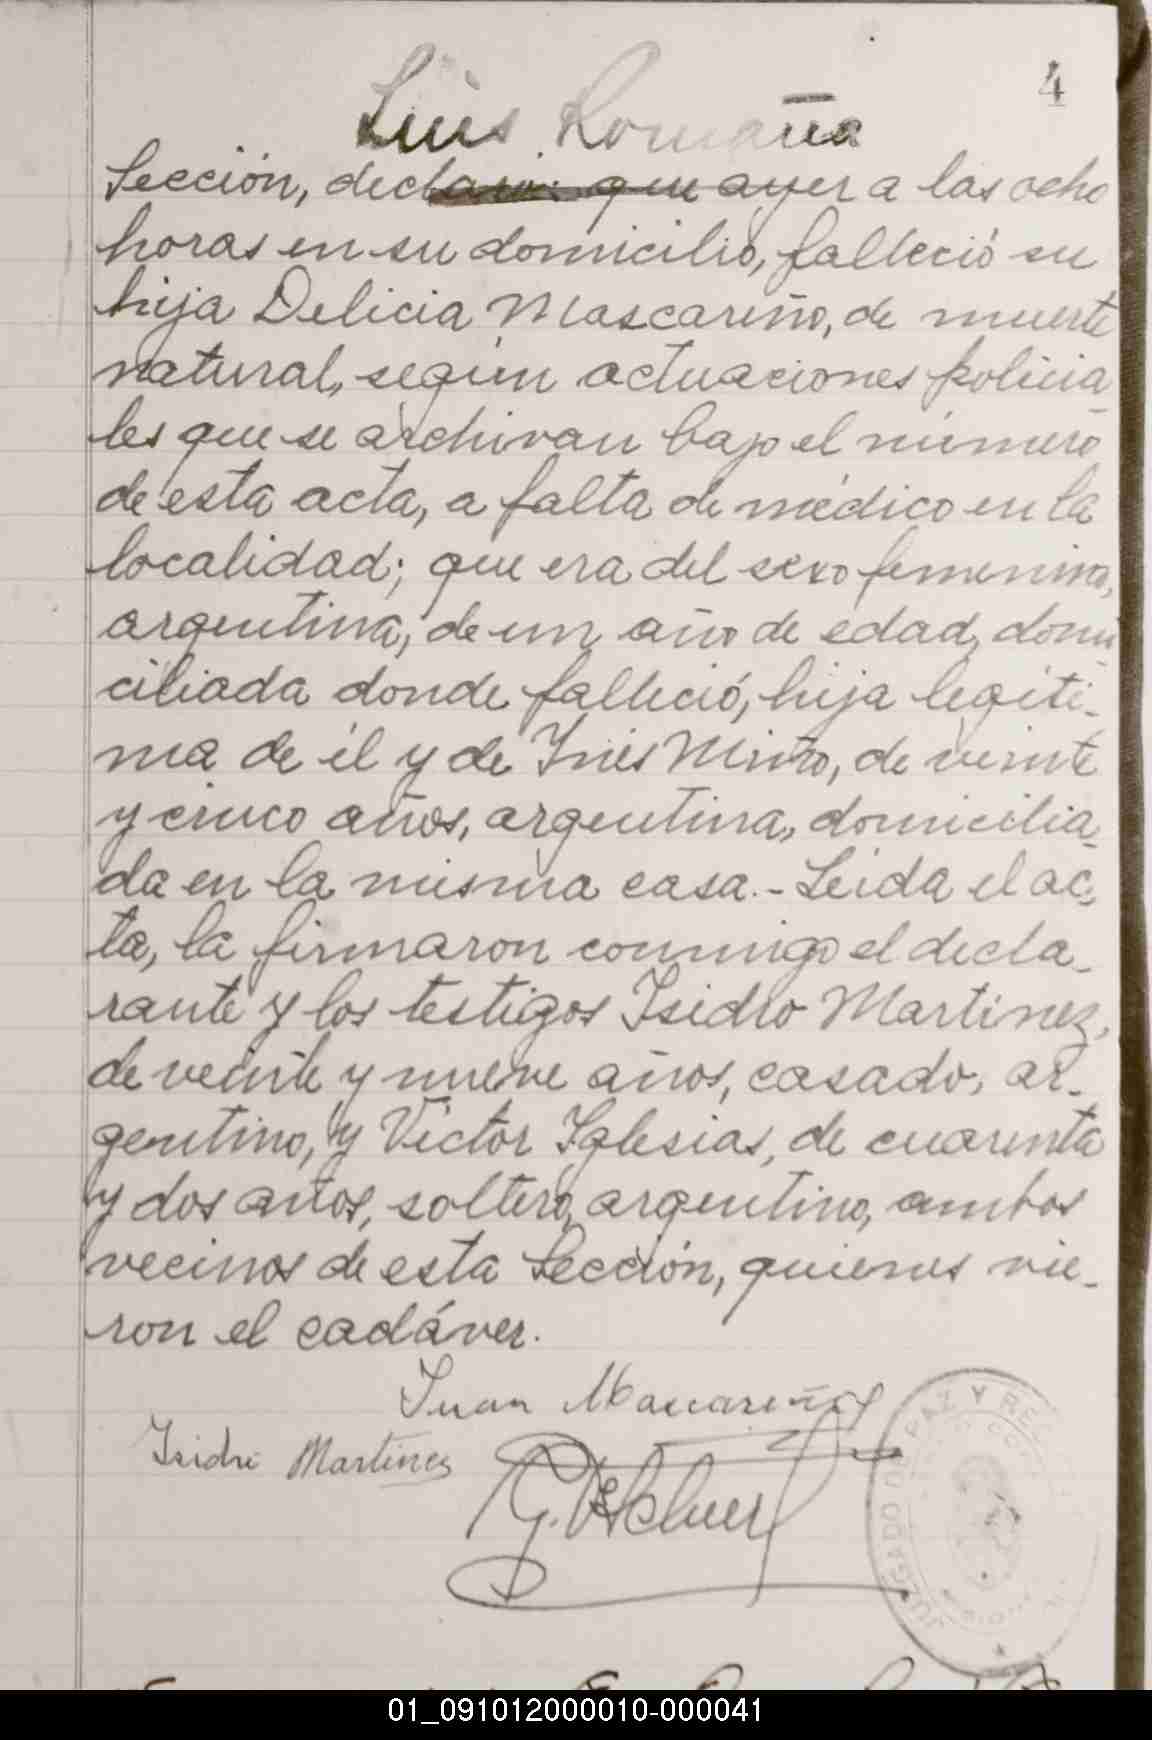 4
Luis Romaña
Sección, declaró: que ayer a las ocho
horas en su domicilio, falleció su
hija Delicia Mascareño, de muerte
natural, según actuaciones policia
les que se archivan bajo el número
de esta acta, a falta de médico en la
localidad; que era del sexo femenino,
argentina, de un año de edad, domi
ciliada donde falleció, hija legíti-
ma de él y de Inés Miño, de veinte
y cinco años, argentina, domicilia-
da en la misma casa.- Leída el ac-
ta, la firmaron conmigo el decla-
rante y los testigos Isidro Martinez,
de veinte y nueve años, casado, ar-
gentino, y Victor Iglesias, de cuarenta
y dos años, soltero, argentino, ambos
vecinos de esta Sección, quienes vie-
ron el cadáver.
Juan Mascareño
Isidro Martinez
JUZGADO DE PAZ Y
01_091012000010-000041